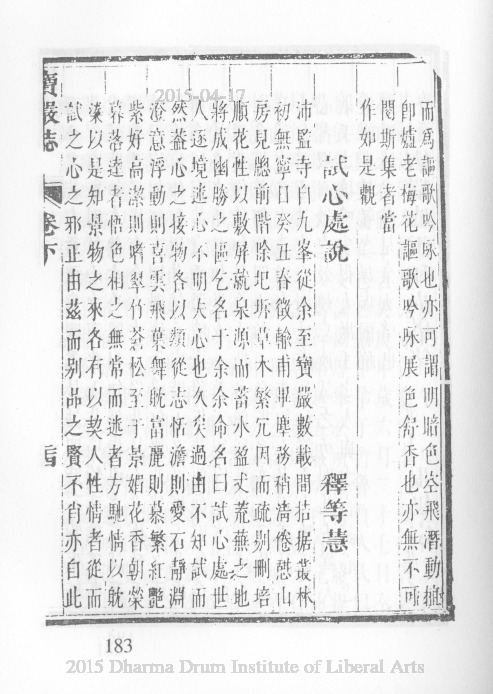 而爲謳歌吟咏也亦可謂明暗色空飛潛動植
即爐老梅花謳歌吟咏展色舒香也亦無不可
閱斯集者當
作如是觀
試心處說
釋等慧
沛監寺自九峯從余至寶嚴數載間拮据叢林
初無寧日癸丑春徵輸甫畢塵務稍清倦憇山
房見牕前階除圯坼草木繁冗因而疏剔刪培
順花性以敷屏就泉源而蓄水盈丈荒蕪之地
將成幽勝之區乞名于余余命名曰試心處世
人逐境迷心不明夫心也久矣過由不知試而
然葢心之接物各以類從志恬澹則愛石靜淵
澄意浮動則喜雲飛葉舞躭富麗則慕繁紅艷
紫好高潔則嗜翠竹蒼松至于景媚花香朝榮
暮落達者悟色相之無常而迷者方馳情以躭
溺以是知景物之來各有以契人性情者從而
試之心之邪正由茲而别品之賢不肖亦自此
寶嚴誌
卷下
183
2015-04-17
2015 Dharma Drum Institute of Liberal Arts